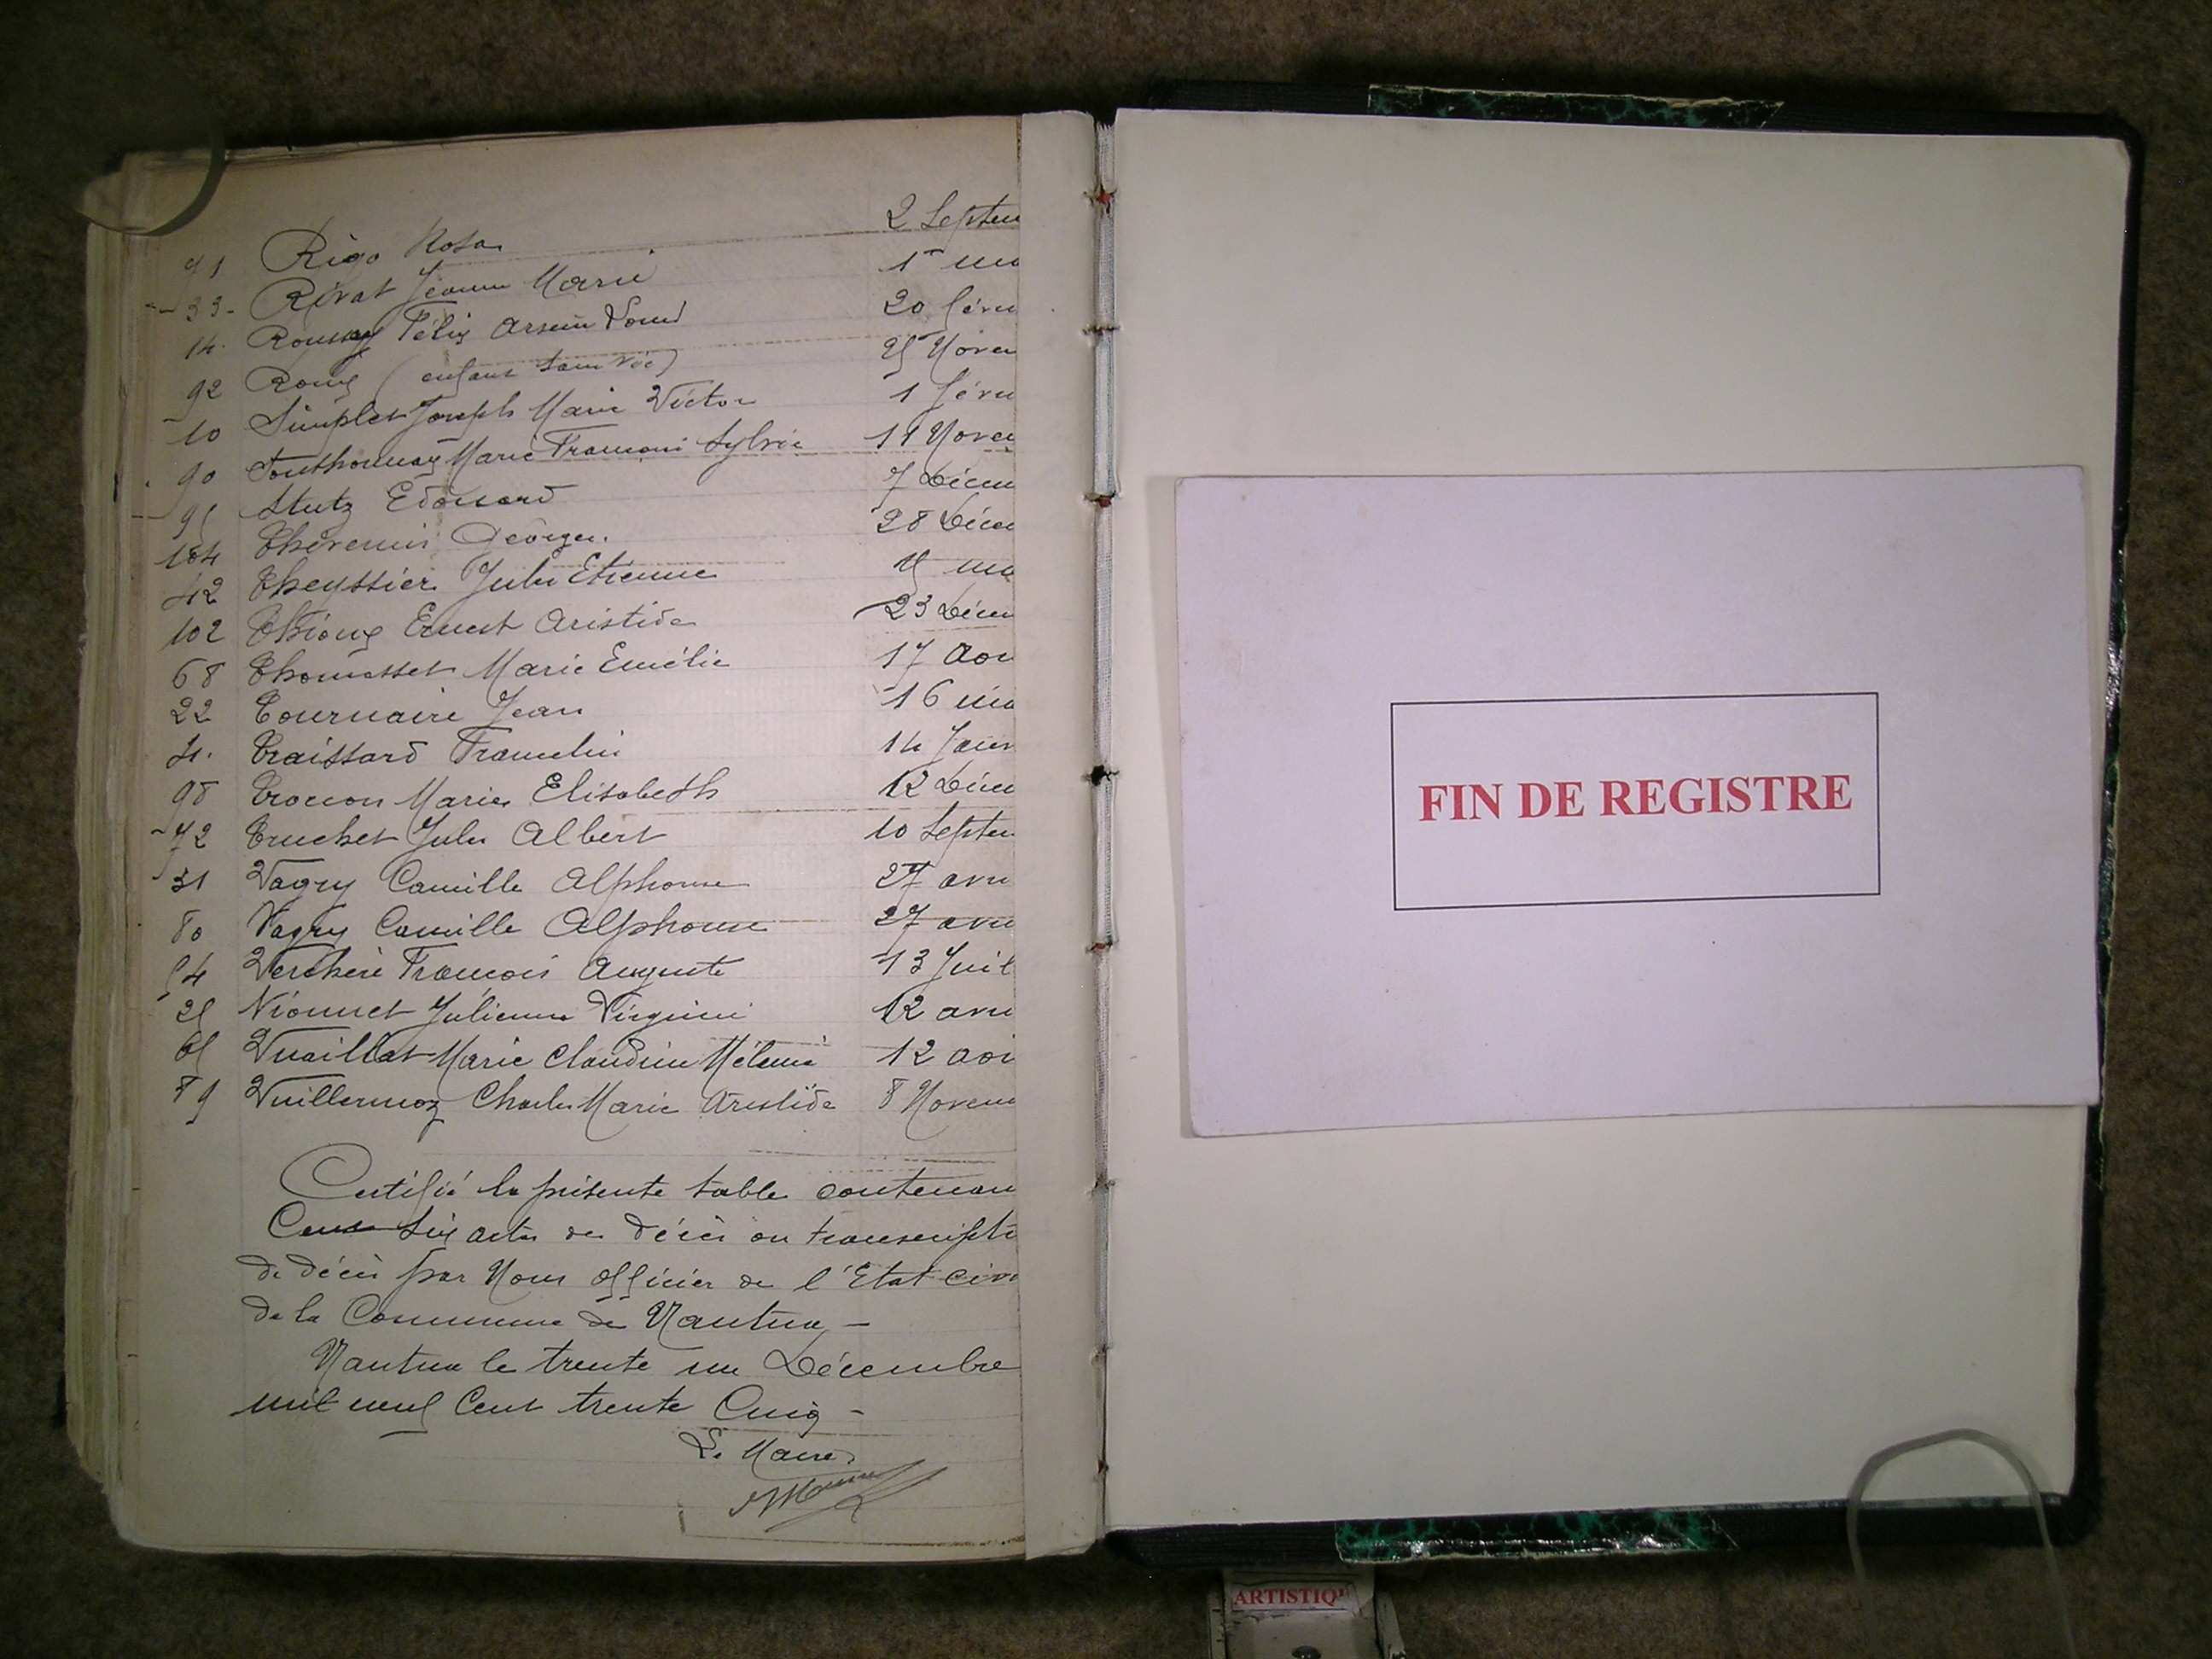 Rigo Rosa 2 Septem
33 Rivat Jeanne Marie 1er ma
14 Roussy Félix Arsène 20 févri
92 Roux (enfant sans vie) 25 Novem
10 Simplet Joseph Marie Victor 1 févri
90 Marie Sylvie 11 Novem
Stutz Edouard 7 Décem
104 Thévenin Georges 28 Décem
42 Theyssier Jules Etienne 15 ma
102 Ernest Aristide 23 Décem
68 Thomasset Marie Emélie 17 Aou
22 Tournaire Jean 16 ma
4 Traissard Francelin 14 Janv
98 Tronon Marie Elisabeth 12 Décem
72 Truchet Jules Albert 10 Septem
31 Vagry Camille Alphonse 27 avri
80 Vagry Camille Alphonse 27 avri
54 Verchère François Auguste 13 Juil
25 Vionnet Julienne Virginie 12 avri
65 Vuaillat Marie Claudine Mélanie 12 aoû
89 Vuillermoz Charles Marie Aristide 8 Novem
Certifié la présente table contenan
Cent Six actes de décès ou transcripti
de décès par Nous officier de l'Etat civi
de la Commune de Nantua –
Nantua le trente un Décembre
mil neuf Cent trente Cinq –
Le Maire
FIN DE REGISTRE
ARTISTIQ